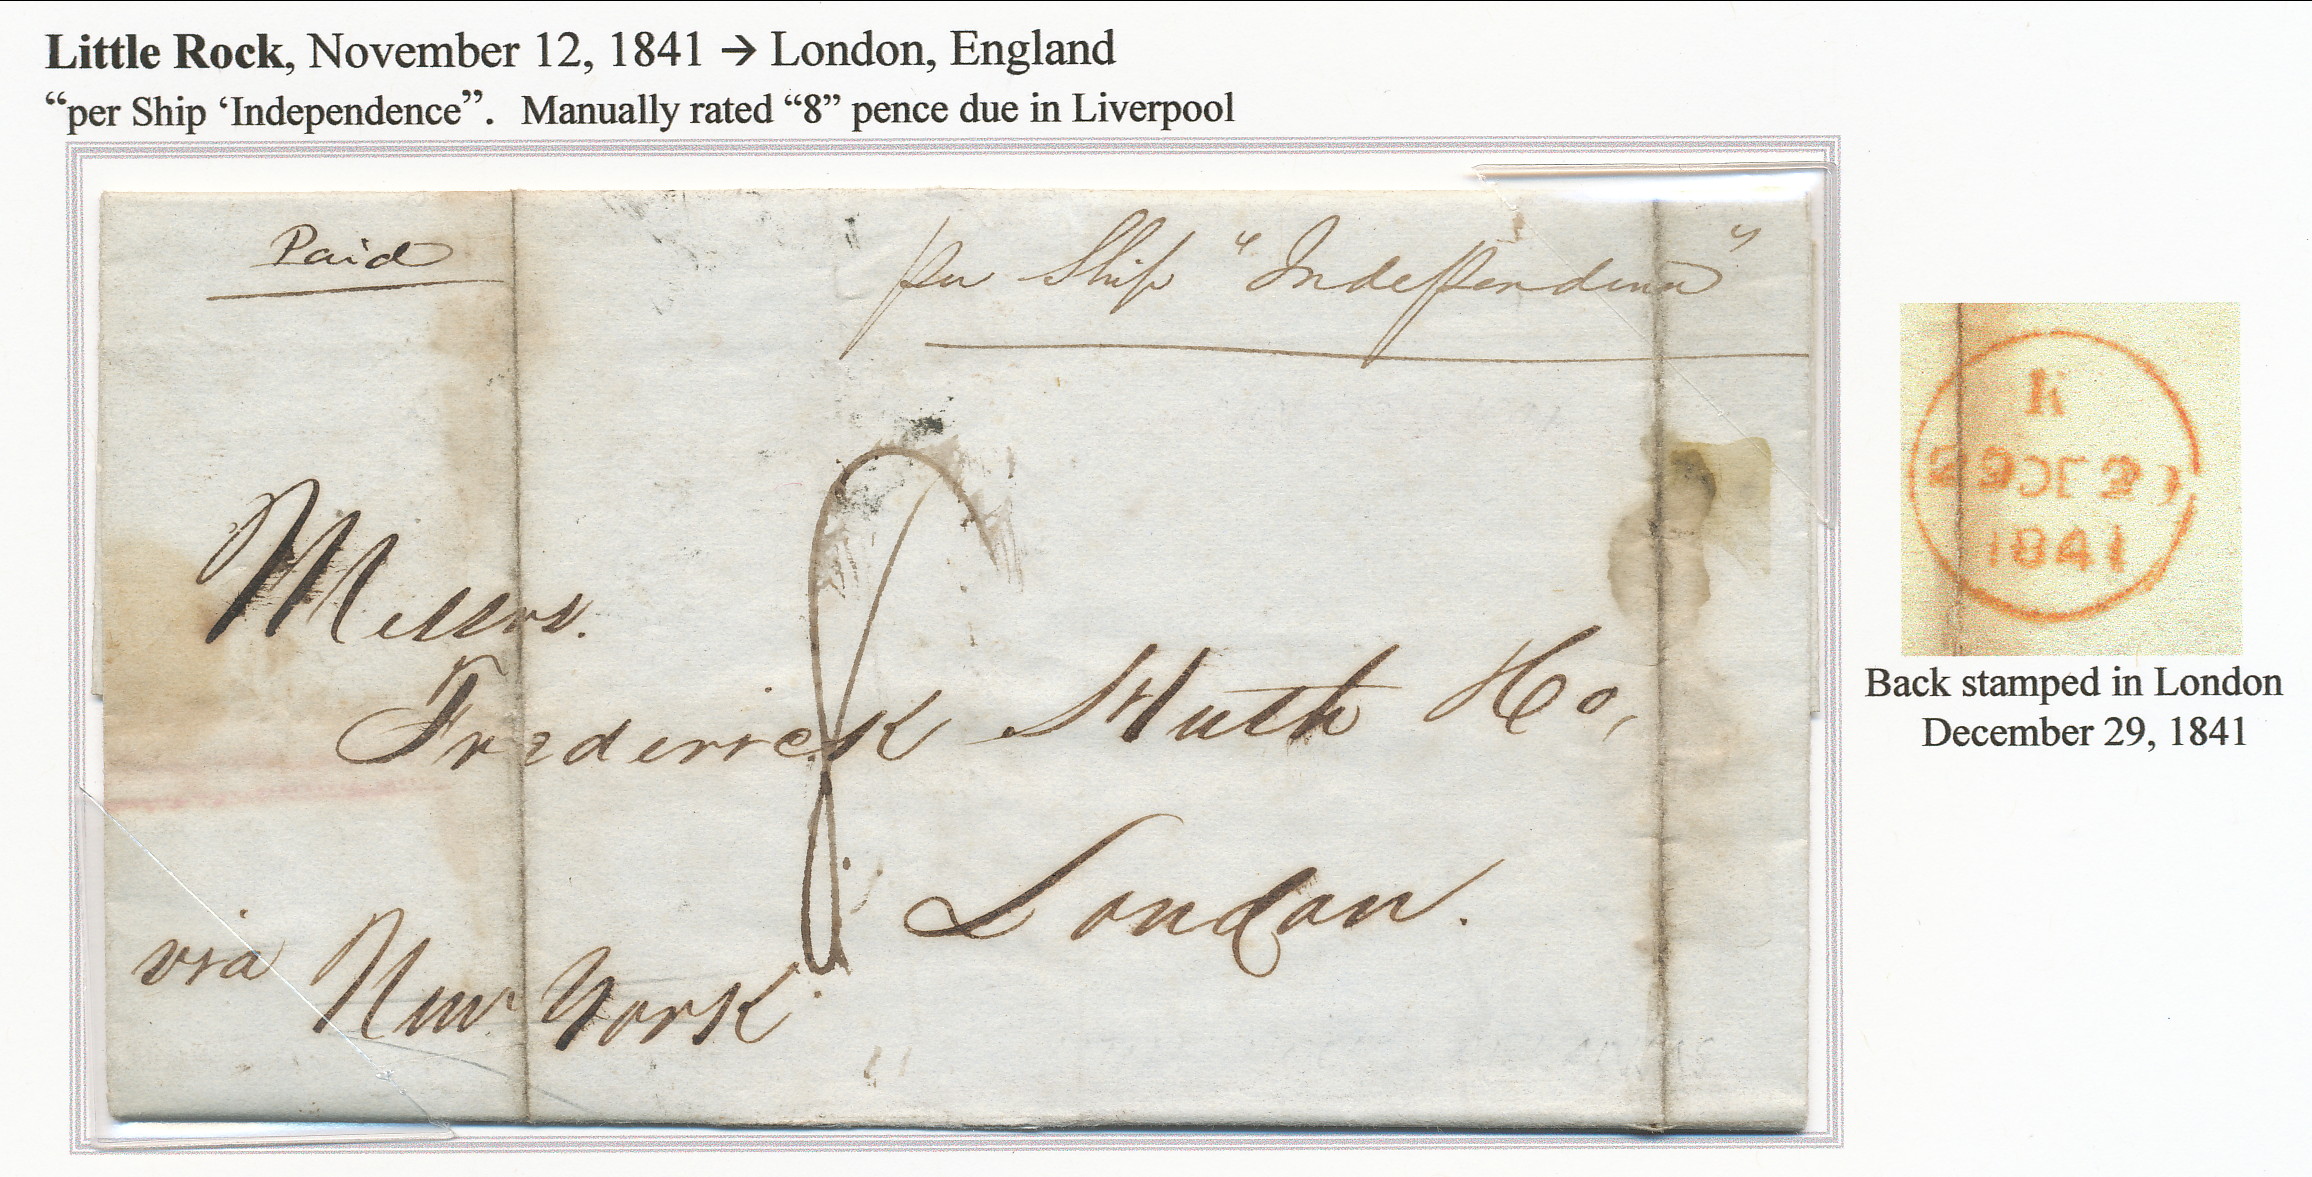 Little Rock, November 12, 1841 → London, England
“per Ship ‘Independence”. Manually rated “8” pence due in Liverpool
Paid
per Ship "Independence"
8
Messrs.
Frederick Huth & Co,
London.
via New York.
K
29 DE 29
1841
Back stamped in London
December 29, 1841